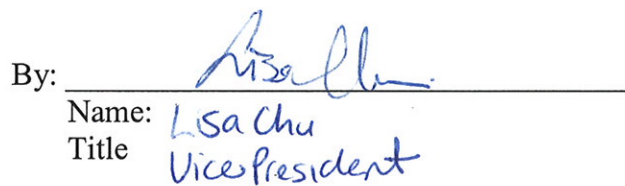 By: Lisa Chu
Name: Lisa Chu
Title Vice President